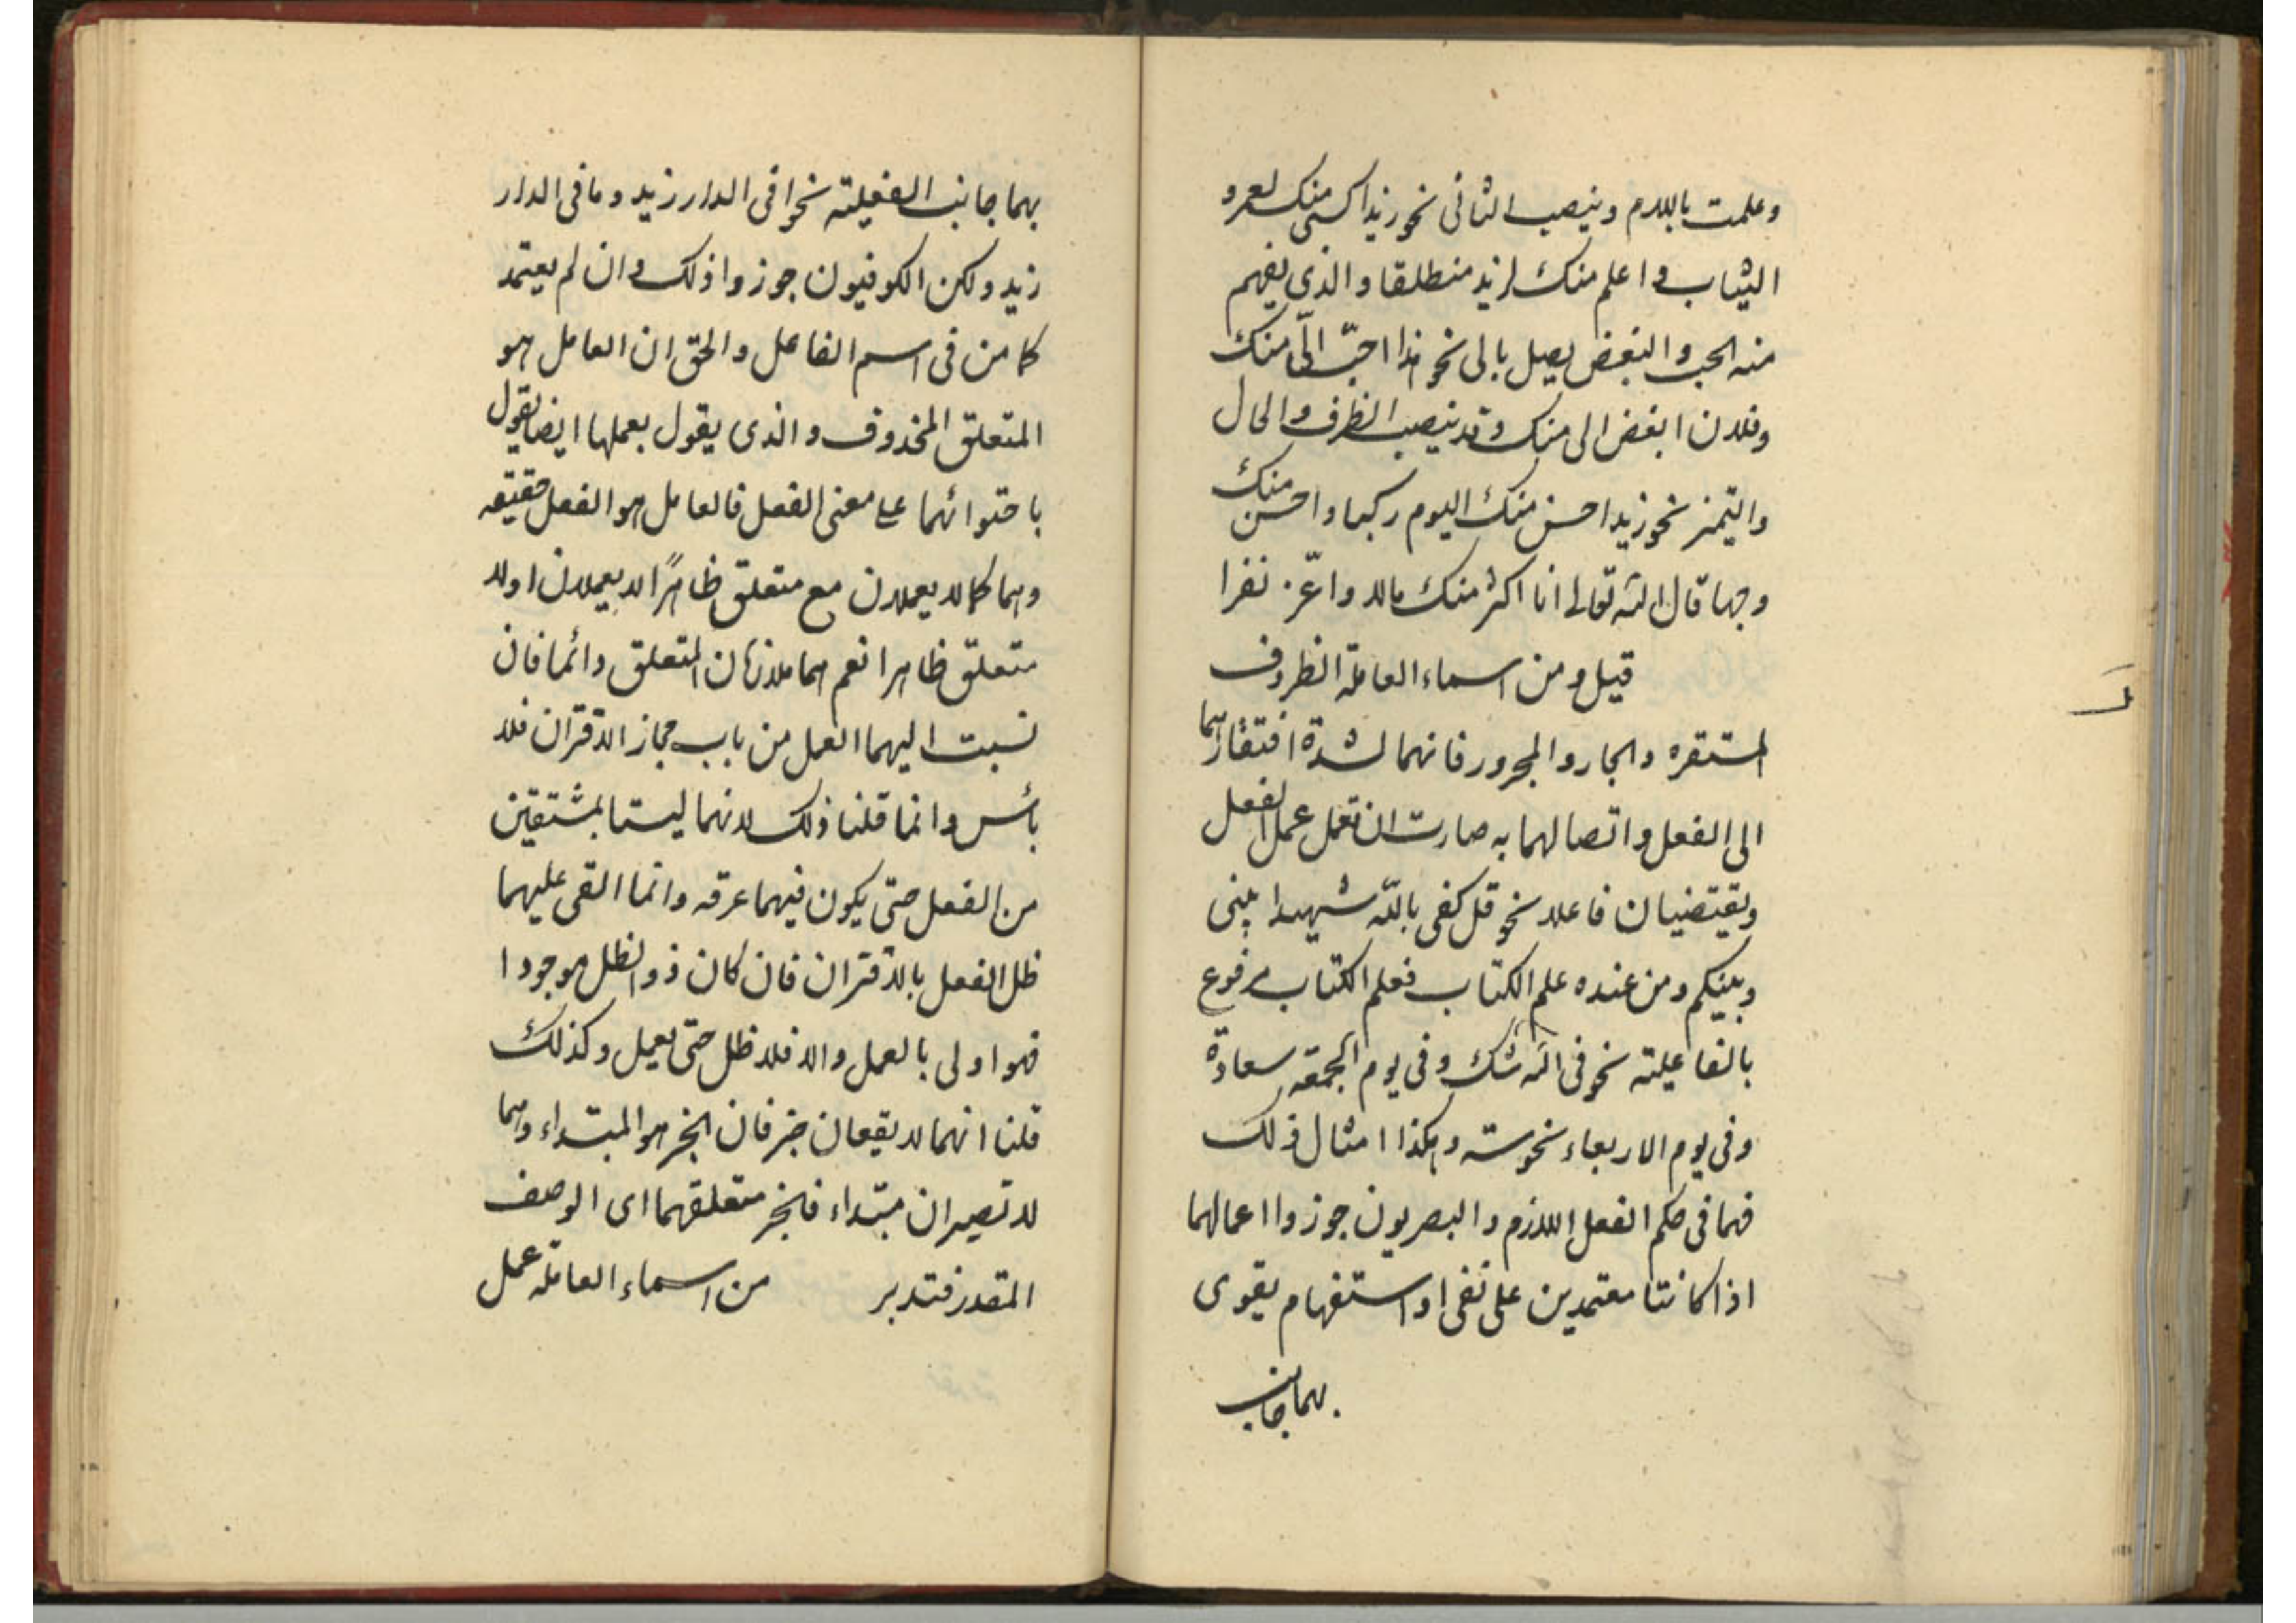 وعلمت باللام وينصب الثانى نحو زيد اكسى منك لعمرو
الثياب واعلم منك لزيد منطلقا والذى يفهم
منه الحب والبغض يصل بالى نحو هذا احبّ الىّ منك
وفلان ابغض الى منك وقد ينصب الظرف والحال
والتميز نحو زيد احسن منك اليوم ركبا واحسن منك
وجها قال الله تعالى انا اكثر منك مالا واعّز نفرا
قيل ومن اسماء العاملة الظروف
المستقره والجار والمجرور فانهما لشدة افتقارهما
الى الفعل واتصالهما به صارت ان تعمل عمل الفعل
ويقتضيان فاعلا نحو قل كفى بالله شهيدا بينى
وبينكم ومن عنده علم الكتاب فعلم الكتاب مرفوع
بالفاعلية نحو فى الله شك وفى يوم الجمعة سعادة
وفى يوم الاربعاء نحوسة وهكذا امثال ذلك
فهما فى حكم الفعل اللازم والبصريون جوزوا اعمالهما
اذا كانتا معتمدين على نفى او استفهام يقوى
بهما جانب
بهما جانب الفعلية نحو افى الدار زيد وما فى الدار
زيد ولكن الكوفيون جوزوا ذلك وان لم يعتمد
كما من فى اسم الفاعل والحق ان العامل هو
المتعلق المحذوف والذى يقول بعملها ايضا يقول
باحتوائهما على معنى الفعل فالعامل هو الفعل حقيقه
وهما كما لا يعملان مع متعلق ظاهرًا لا يعملان اولا
متعلق ظاهرا نعم هما ملازمان المتعلق دائما فان
نسبت اليهما العمل من باب مجاز الاقتران فلا
بأس وانما قلنا ذلك لانهما ليستا بمشتقين
من الفعل حتى يكون فيهما عرقه وانما القى عليهما
ظل الفعل بالاقتران فان كان ذو الظل موجودا
فهو اولى بالعمل والا فلا ظل حتى يعمل وكذلك
قلنا انهما لا يقعان خبر فان الخبر هو المبتداء وهما
لا تصيران مبتداء فالخبر متعلقهما اى الوصف
المقدر فتدبر من اسماء العاملة عمل